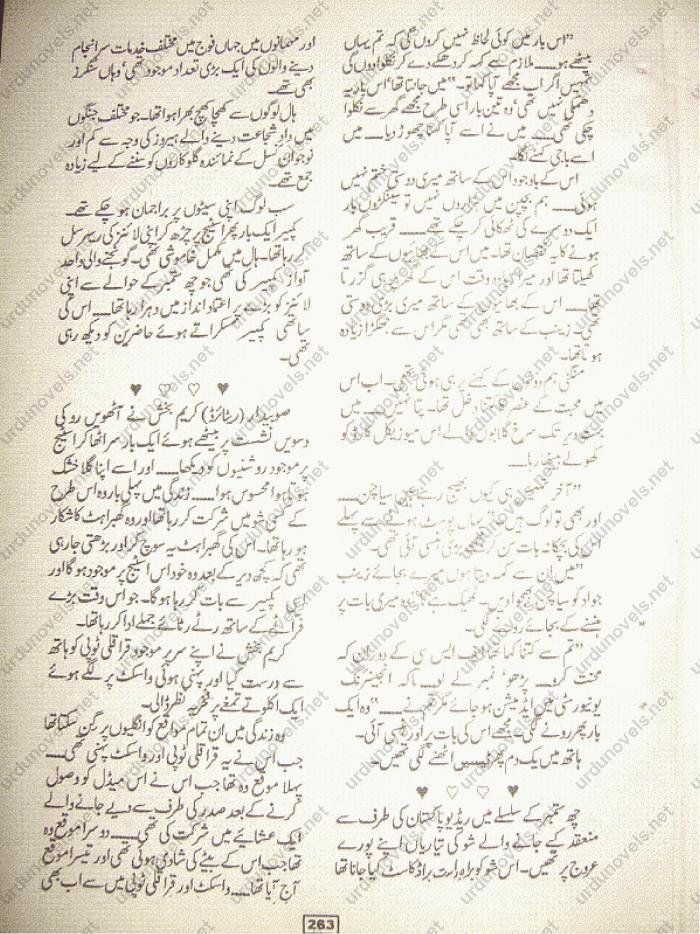 "اس بار میں کوئی لحاظ نہیں کروں گی کہ تم یہاں
بیٹھے ہو۔۔۔۔ ملازم سے کہہ کر دھکے دے کر نکلوا دوں گی
تمہیں اگر اب مجھے آپا کہا تو۔" میں جانتا تھا اس بار یہ
دھمکی نہیں تھی' وہ تین بار اسی طرح مجھے گھر سے نکلوا
چکی تھی۔۔۔۔ میں نے اسے آپا کہنا چھوڑ دیا۔۔۔۔ میں
اسے باجی کہنے لگا۔
اس کے باوجود اس کے ساتھ میری دوستی ختم نہیں
ہوئی۔۔۔۔ ہم بچپن میں ہزاروں نہیں تو سینکڑوں بار
ایک دوسرے کی ٹھکائی کر چکے تھے۔۔۔۔ قریب گھر
ہونے کا یہ نقصان تھا۔ میں اس کے بھائیوں کے ساتھ
کھیلتا تھا اور میرا وقت اس کے گھر میں ہی گزرتا
تھا۔۔۔۔ اس کے بھائیوں کے ساتھ میری بڑی دوستی
تھی۔ زینب کے ساتھ بھی تھی مگر اس سے جھگڑا زیادہ
ہوتا تھا۔
منگنی ہم دونوں کے کہنے پر ہی ہوئی تھی۔ اب اس
میں محبت کے عنصر کا کتنا دخل تھا۔ پتا نہیں۔۔۔۔ میں
بہت دیر تک سرخ گلابوں والے اس میوزیکل کارڈ کو
کھولے بیٹھا رہا۔
"آخر تمہیں ہی کیوں بھیج رہے ہیں سیاچن۔۔۔۔
اور بھی تو لوگ ہیں" یہاں پوسٹ ہونے سے پہلے
اس کی بچکانہ بات سن کر مجھے بڑی ہنسی آئی تھی۔
"میں ان سے کہہ دیتا ہوں میرے بجائے زینب
جواد کو سیاچن بھجوا دیں۔ ٹھیک ہے؟" وہ میری بات پر
ہنسنے کے بجائے رونے لگی۔
"تم سے کتنا کہا تھا ایف ایس سی کے دوران کہ
محنت کرو۔۔۔۔ پڑھو' نمبر لے لو۔۔۔۔ تاکہ انجینئرنگ
یونیورسٹی میں ایڈمیشن ہو جائے مگر تم نے۔۔۔۔" وہ ایک
بار پھر رونے لگی۔ مجھے اس کی بات پر اور ہنسی آئی۔
ہاتھ میں یک دم اٹھنے لگی تھیں۔
♥ ♡ ♡ ♥
چھ ستمبر کے سلسلے میں ریڈیو پاکستان کی طرف سے
منعقد کیے جانے والے شو کی تیاریاں اپنے پورے
عروج پر تھیں۔ اس شو کو براہ راست براڈ کاسٹ کیا جانا تھا
اور مہمانوں میں جہاں فوج میں مختلف خدمات سرانجام
دینے والوں کی ایک بڑی تعداد موجود تھی' وہاں سنگرز
بھی تھے۔
ہال لوگوں سے کھچا کھچ بھرا ہوا تھا۔ جو مختلف جنگوں
میں داد شجاعت دینے والے ہیروز کی وجہ سے کم اور
نوجوان نسل کے نمائندہ گلوکاروں کو سننے کے لیے زیادہ
جمع تھے۔
سب لوگ اپنی سیٹوں پر براجمان ہو چکے تھے۔
کمپیئر ایک بار پھر اسٹیج پر چڑھ کر اپنی لائنز کی ریہرسل
کر رہا تھا۔ ہال میں مکمل خاموشی تھی۔ گونجنے والی واحد
آواز کمپیئر کی تھی جو چھ ستمبر کے حوالے سے اپنی
لائنز کو بڑے پر اعتماد انداز میں دہرا رہا تھا۔۔۔۔ اس کی
ساتھی کمپیئر مسکراتے ہوئے حاضرین کو دیکھ رہی
تھی۔
♥ ♡ ♡ ♥
صوبیدار (ریٹائرڈ) کریم بخش نے آٹھویں رو کی
دسویں نشست پر بیٹھے ہوئے ایک بار سر اٹھا کر اسٹیج
پر موجود روشنیوں کو دیکھا۔۔۔۔ اور اسے اپنا گلا خشک
ہوتا ہوا محسوس ہوا۔۔۔۔ زندگی میں پہلی بار وہ اس طرح
کے کسی شو میں شرکت کر رہا تھا اور وہ گھبراہٹ کا شکار
ہو رہا تھا۔ اس کی گھبراہٹ یہ سوچ کر اور بڑھتی جا رہی
تھی کہ کچھ دیر کے بعد وہ خود اس اسٹیج پر موجود ہو گا اور
اسی کمپیئر سے بات کر رہا ہو گا۔ جو اس وقت بڑے
فراٹے کے ساتھ رٹے رٹائے جملے ادا کر رہا تھا۔
کریم بخش نے اپنے سر پر موجود قراقلی ٹوپی کو ہاتھ
سے درست کیا اور پہنی ہوئی واسکٹ پر لگے ہوئے
ایک اکلوتے تمغے پر فخریہ نظر ڈالی۔
وہ زندگی میں ان تمام مواقع کو انگلیوں پر گن سکتا تھا
جب اس نے یہ قراقلی ٹوپی اور واسکٹ پہنی تھی۔۔۔۔
پہلا موقع وہ تھا جب اس نے اس میڈل کو وصول
کرنے کے بعد صدر کی طرف سے دیے جانے والے
ایک عشائیے میں شرکت کی تھی۔۔۔۔ دوسرا موقع وہ
تھا جب اس کے بیٹے کی شادی ہوئی تھی اور تیسرا موقع
آج آیا تھا۔۔۔۔ واسکٹ اور قراقلی ٹوپی میں سے اب بھی
263
urdunovels.net